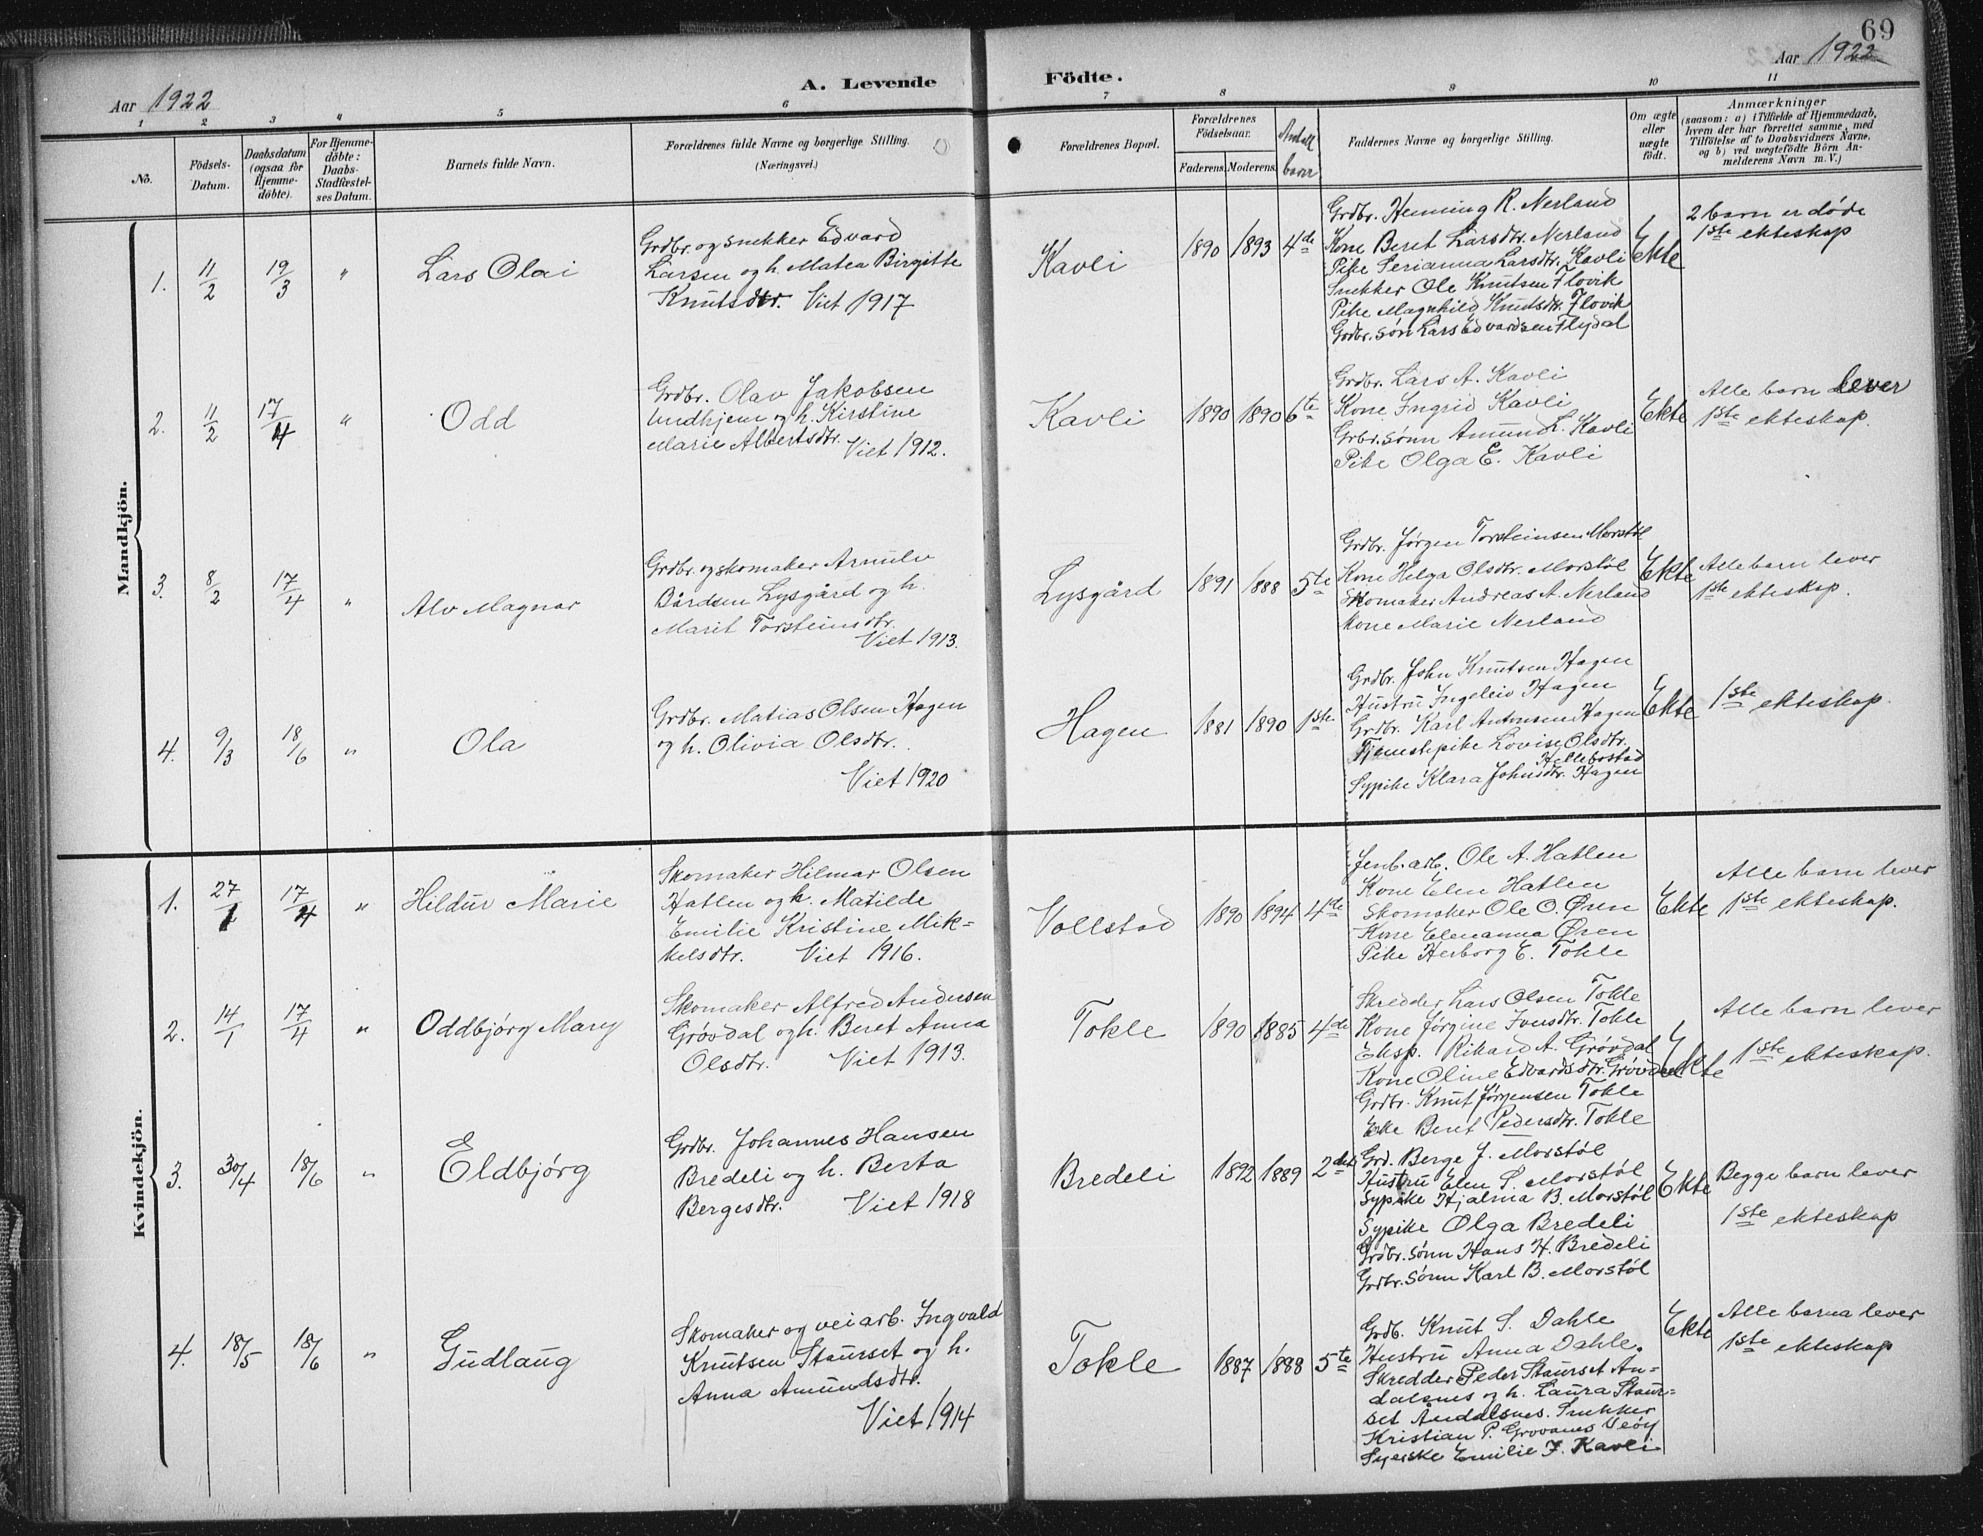 69
Aar 1922
A. Levende Födte.
Aar 1922
1 2 3 4 5 6 7 8 9 10 11
No.
Födsels-
Datum.
Daabsdatum
(ogsaa for
Hjemme-
döbte).
For Hjemme-
döbte:
Daabs-
Stadfæstel-
ses Datum.
Barnets fulde Navn.
Forældrenes fulde Navne og borgerlige Stilling.
(Næringsvei.)
Forældrenes Bopæl.
Forældrenes
Födselsaar.
Faderens. Moderens.
Antall
barn
Faddernes Navne og borgerlige Stilling.
Om ægte
eller
uægte
födt.
Anmærkninger
(saasom: a) i Tilfælde af Hjemmedaab,
hvem der har forrettet samme, med
Tilföielse af to Daabsvidners Navne,
og b) ved uægtefödte Börn An-
melderens Navn m. V.)
Mandkjön.
1. 11/2 19/3 " Lars Olai
Grdbr. og snekker Edvard
Larsen og h. Matea Birgitte
Knutsdtr. Viet 1917
Kavli 1890 1893 4de
Grdbr. Henning R. Nerland
Kone Beret Larsdtr. Nerland
Pike Serianna Larsdtr. Kavli
Snekker Ole Knutsen Flovik
Pike Magnhild Knutsdtr. Flovik
Grdbr. søn Lars Edvardsen Flydal
Ekte
2 barn er døde
1ste ekteskap
2. 11/2 17/4 " Odd
Grdbr. Olav Jakobsen
Undhjem og h. Kirstine
Marie Albertsdtr.
Viet 1912.
Kavli 1890 1890 6te
Grdbr. Lars A. Kavli
Kone Ingrid Kavli
Grbr. sønn Amund L. Kavli
Pike Olga E. Kavli
Ekte
Alle barn lever
1ste ekteskap.
3. 8/2 17/4 " Alv Magnar
Grdbr. og skomaker Arnulv
Bårdsen Lysgård og h.
Marit Torsteinsdtr.
Viet 1913.
Lysgård 1891 1888 5te
Grdbr. Jørgen Torsteinsen Morstøl
Kone Helga Olsdtr. Morstøl
Skomaker Andreas A. Nerland
Kone Marie Nerland
Ekte
Alle barn lever
1ste ekteskap.
4. 9/3 18/6 " Ola
Grdbr. Matias Olsen Hagen
og h. Olivia Olsdtr.
Viet 1920
Hagen 1881 1890 1ste
Grdbr. John Knutsen Hagen
Hustru Ingeleiv Hagen
Grdbr. Karl Antonsen Hagen
Tjenestepike Lovise Olsdtr.
Hellebostad
Sypike Klara Johnsdtr. Hagen
Ekte
1ste ekteskap.
Kvindekjön.
1. 27/1 17/4 " Hildur Marie
Skomaker Hilmar Olsen
Hatlen og h. Matilde
Emilie Kristine Mik-
kelsdtr. Viet 1916.
Vollstad 1890 1894 4de
Jenb. arb. Ole A. Hatlen
Kone Elen Hatlen
Skomaker Ole O. Øren
Kone Elenanna Øren
Pike Herborg E. Tokle
Ekte
Alle barn lever
1ste ekteskap.
2. 14/1 17/4 " Oddbjørg Mary
Skomaker Alfred Andersen
Grøvdal og h. Beret Anna
Olsdtr. Viet 1913.
Tokle 1890 1885 4de
Skredder Lars Olsen Tokle
Kone Jørgine Iversdtr. Tokle
Eksp. Rikard A. Grøvdal
Kone Oline Edvardsdtr. Grøvdal
Grdbr. Knut Jørgensen Tokle
Enke Beret Pedersdtr. Tokle
Ekte
Alle barn lever
1ste ekteskap.
3. 30/4 18/6 " Eldbjørg
Grdbr. Johannes Hansen
Bredeli og h. Berta
Bergesdtr. Viet 1918
Bredeli 1892 1889 2det
Grd. Berge J. Morstøl
Hustru Elen S. Morstøl
Sypike Hjalma B. Morstøl
Sypike Olga Bredeli
Grdbr. sønn Hans H. Bredeli
Grdbr. sønn Karl B. Morstøl
Ekte
Begge barn lever
1ste ekteskap
4. 18/5 18/6 " Gudlaug
Skomaker og veiarb. Ingvald
Knutsen Staurset og h.
Anna Amundsdtr.
Viet 1914
Tokle 1887 1888 5te
Grdb. Knut S. Dahle
Hustru Anna Dahle.
Skredder Peder Staurset An-
dalsnes og h. Laura Staur-
set Åndalsnes. Snekker
Kristian P. Grovanes Veøy
Syerske Emilie J. Kavli
Ekte
Alle barna lever
1ste ekteskap